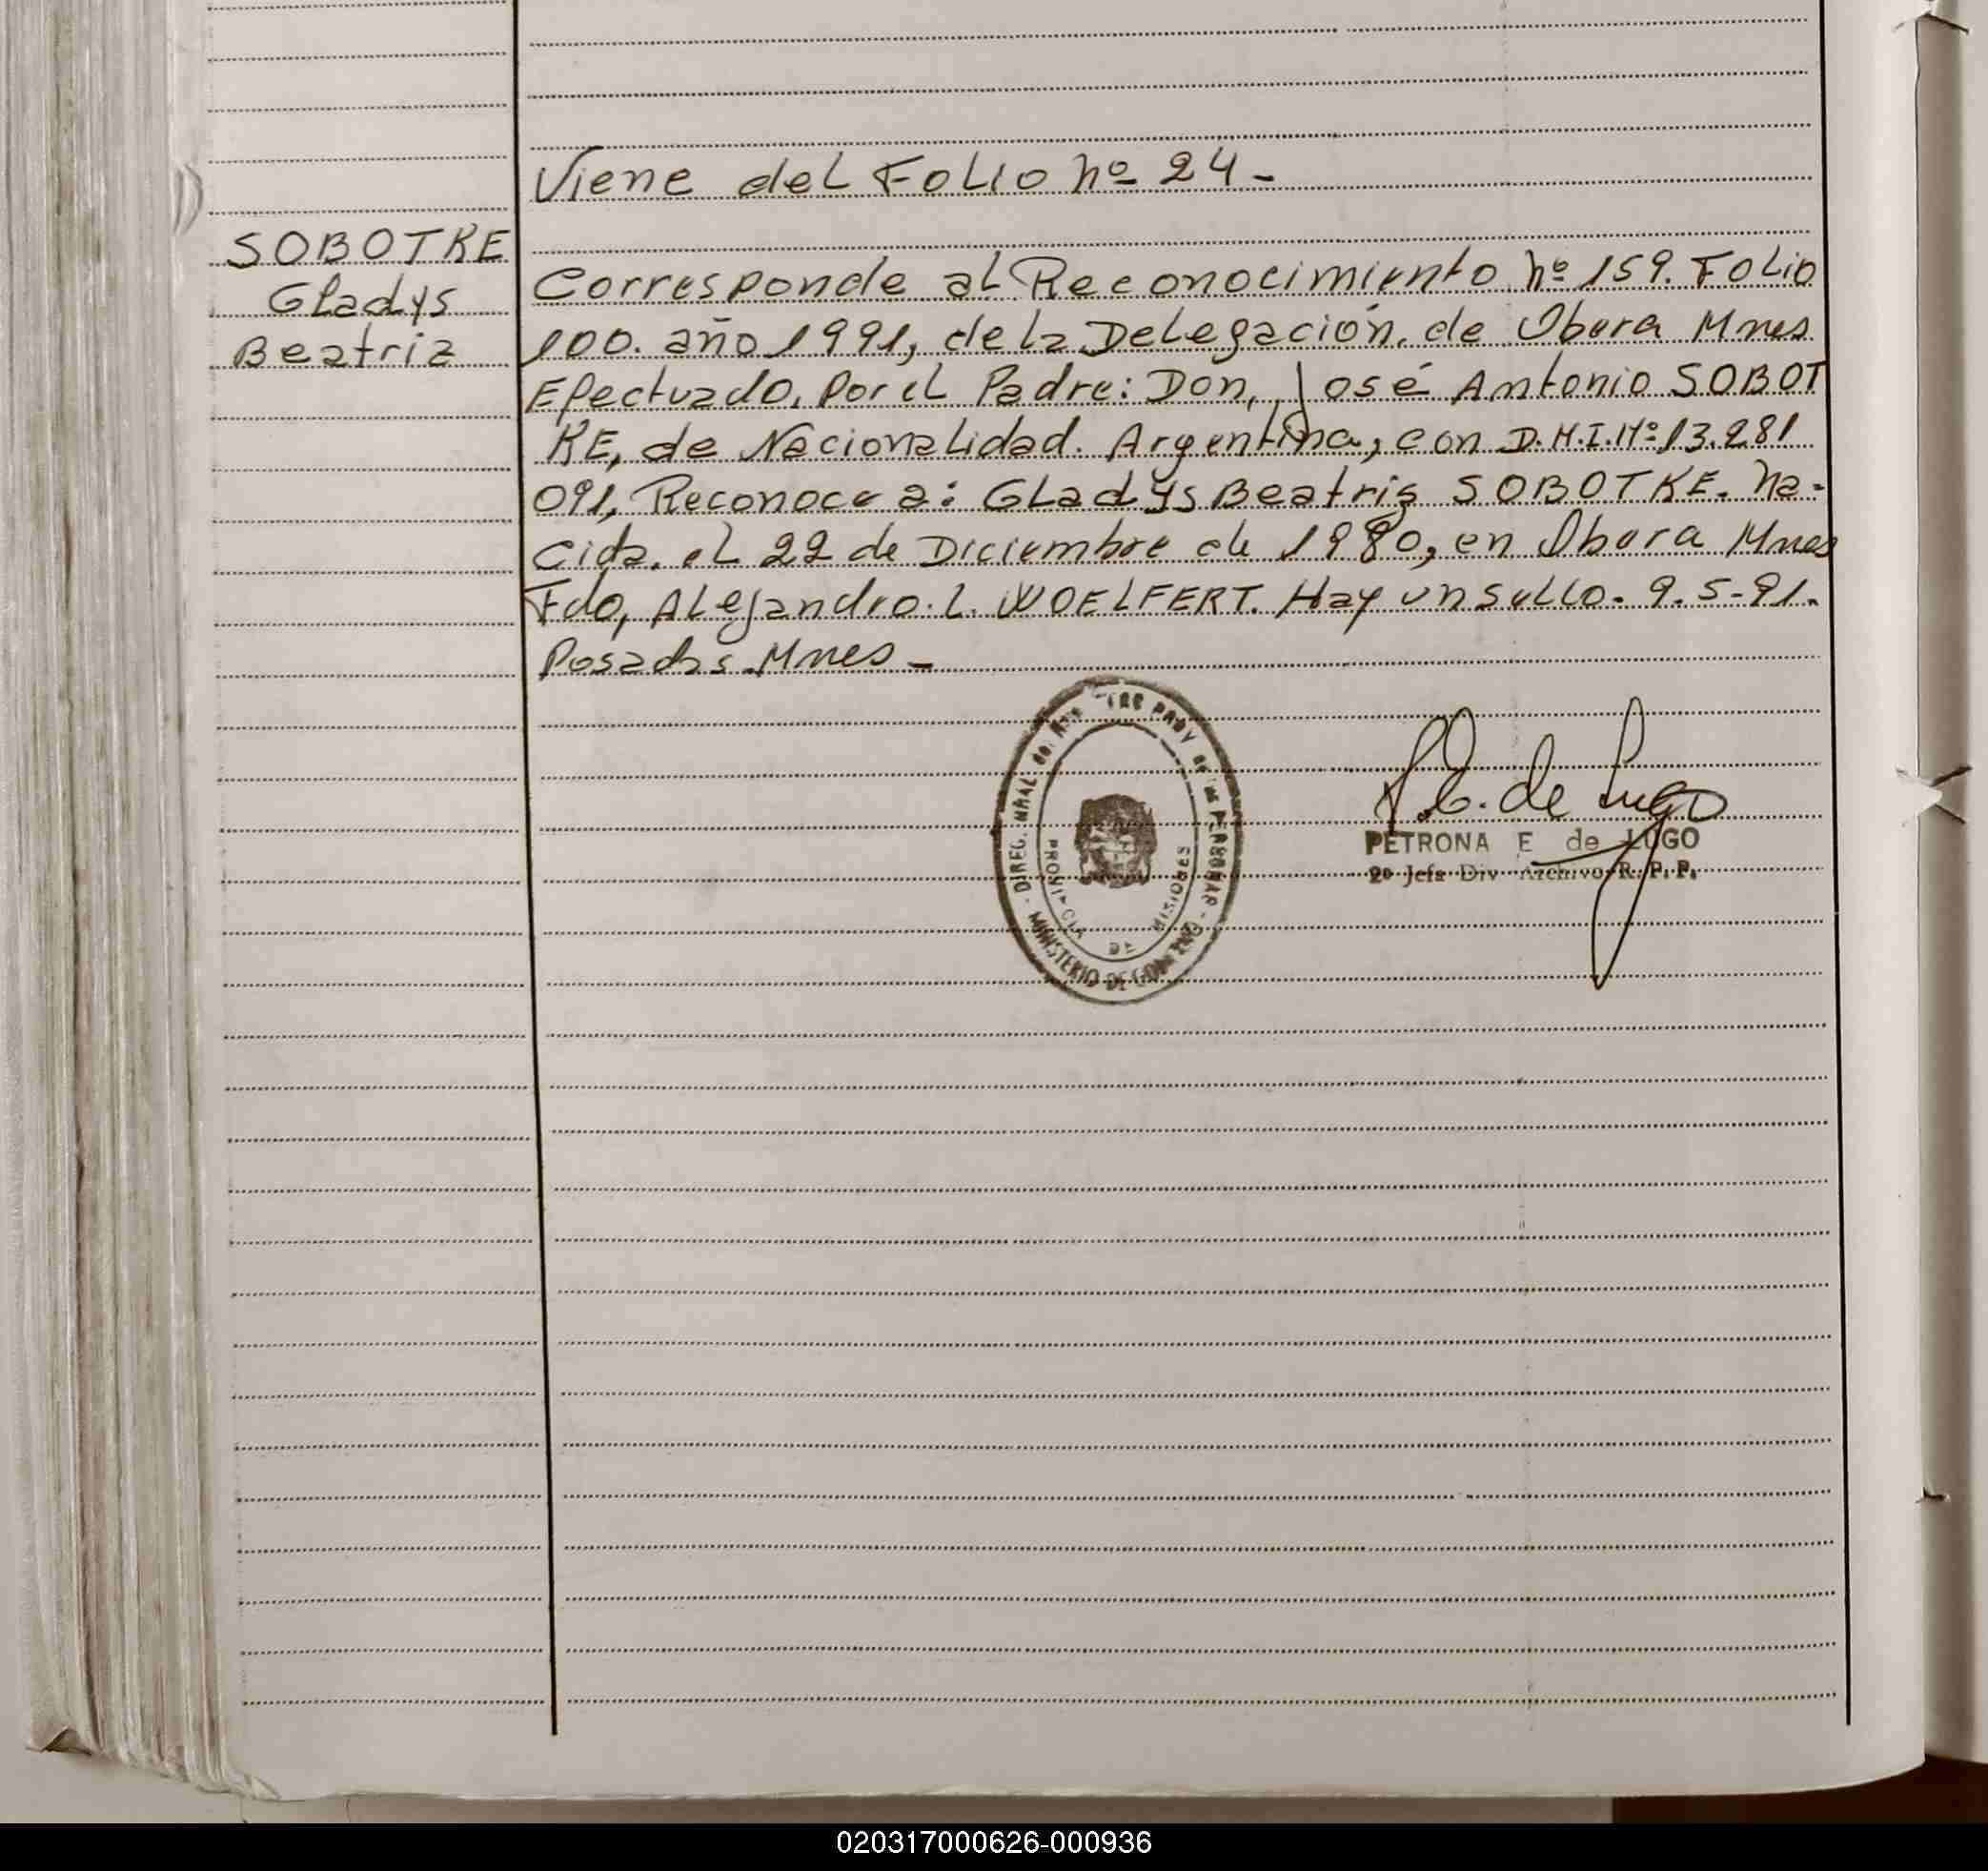 Viene del Folio nº 24-
SOBOTKE
Gladys
Beatriz
Corresponde al Reconocimiento nº 159. Folio
100. año 1991, de la Delegación, de Obera Mnes
Efectuado, Por el Padre: Don, José Antonio SOBOT
KE, de Nacionalidad. Argentina, con D.N.I.Nº 13.281
091, Reconoce a: Gladys Beatris SOBOTKE. na-
cida. el 22 de Diciembre de 1980, en Obera Mnes
Fdo, Alejandro. L. WOELFERT. Hay un sello. 9.5-91.
Posadas. Mnes-
DIREC. GRAL
PROVINCIA DE MISIONES
MINISTERIO DE GOBIERNO
P.E. de Lugo
PETRONA E de LUGO
2º Jefa Div Archivo R. P. P.
020317000626-000936